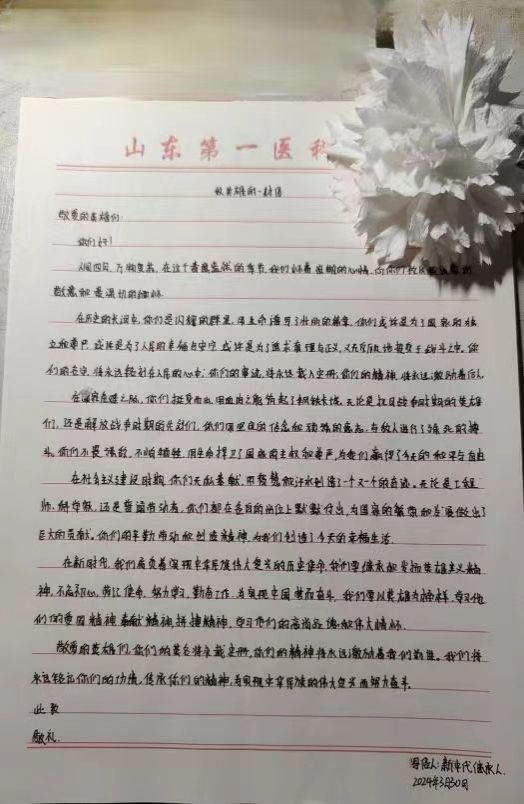 山东第一医科
致英雄的一封信
敬爱的英雄们:
你们好!
人间四月,万物复苏,在这个春意盎然的季节,我们怀着崇敬的心情,向你们致以最
敬意和最深切的缅怀.
在历史的长河中,你们是闪耀的群星,用生命谱写了壮丽的篇章,你们或许是为了国家的独
立和尊严,或许是为了人民的幸福与安宁,或许是为了追求真理与正义,义无反顾地投身于战斗之中.你
们的名字,将永远铭刻在人民的心中;你们的事迹,将永远载入史册,你们的精神,将永远激励着后人.
在国家危难之际,你们挺身而出,用血肉之躯筑起了钢铁长城.无论是抗日战争时期的英雄
们,还是解放战争时期的先烈们,你们用坚定的信念和顽强的意志,与敌人进行了殊死的搏
斗.你们不畏强敌,不怕牺牲,用生命捍卫了国家的主权和尊严,为我们赢得了今天的和平与自由
在社会主义建设时期,你们无私奉献,用智慧和汗水创造了一个又一个的奇迹.无论是工程
师,科学家,还是普通劳动者,你们都在各自的岗位上默默付出,为国家的繁荣和发展做出了
巨大的贡献.你们用辛勤劳动和创造精神,为我们创造了今天的幸福生活.
在新时代,我们肩负着实现中华民族伟大复兴的历史使命.我们要继承和发扬英雄主义精
神,不忘初心,牢记使命,努力学习,勤奋工作,为实现中国梦而奋斗.我们要以英雄为榜样,学习他
们的爱国精神,奉献精神,拼搏精神,学习他们的高尚品德和伟大情怀.
敬爱的英雄们,你们的英名将永载史册,你们的精神将永远激励着我们前进.我们将
永远铭记你们的功绩,传承你们的精神,为实现中华民族的伟大复兴而努力奋斗.
此致
敬礼.
写信人:新时代继承人.
2024年3月30日